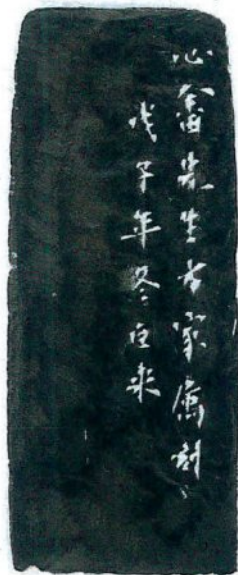 心畬先生方家属刻
戊子年冬 巨来